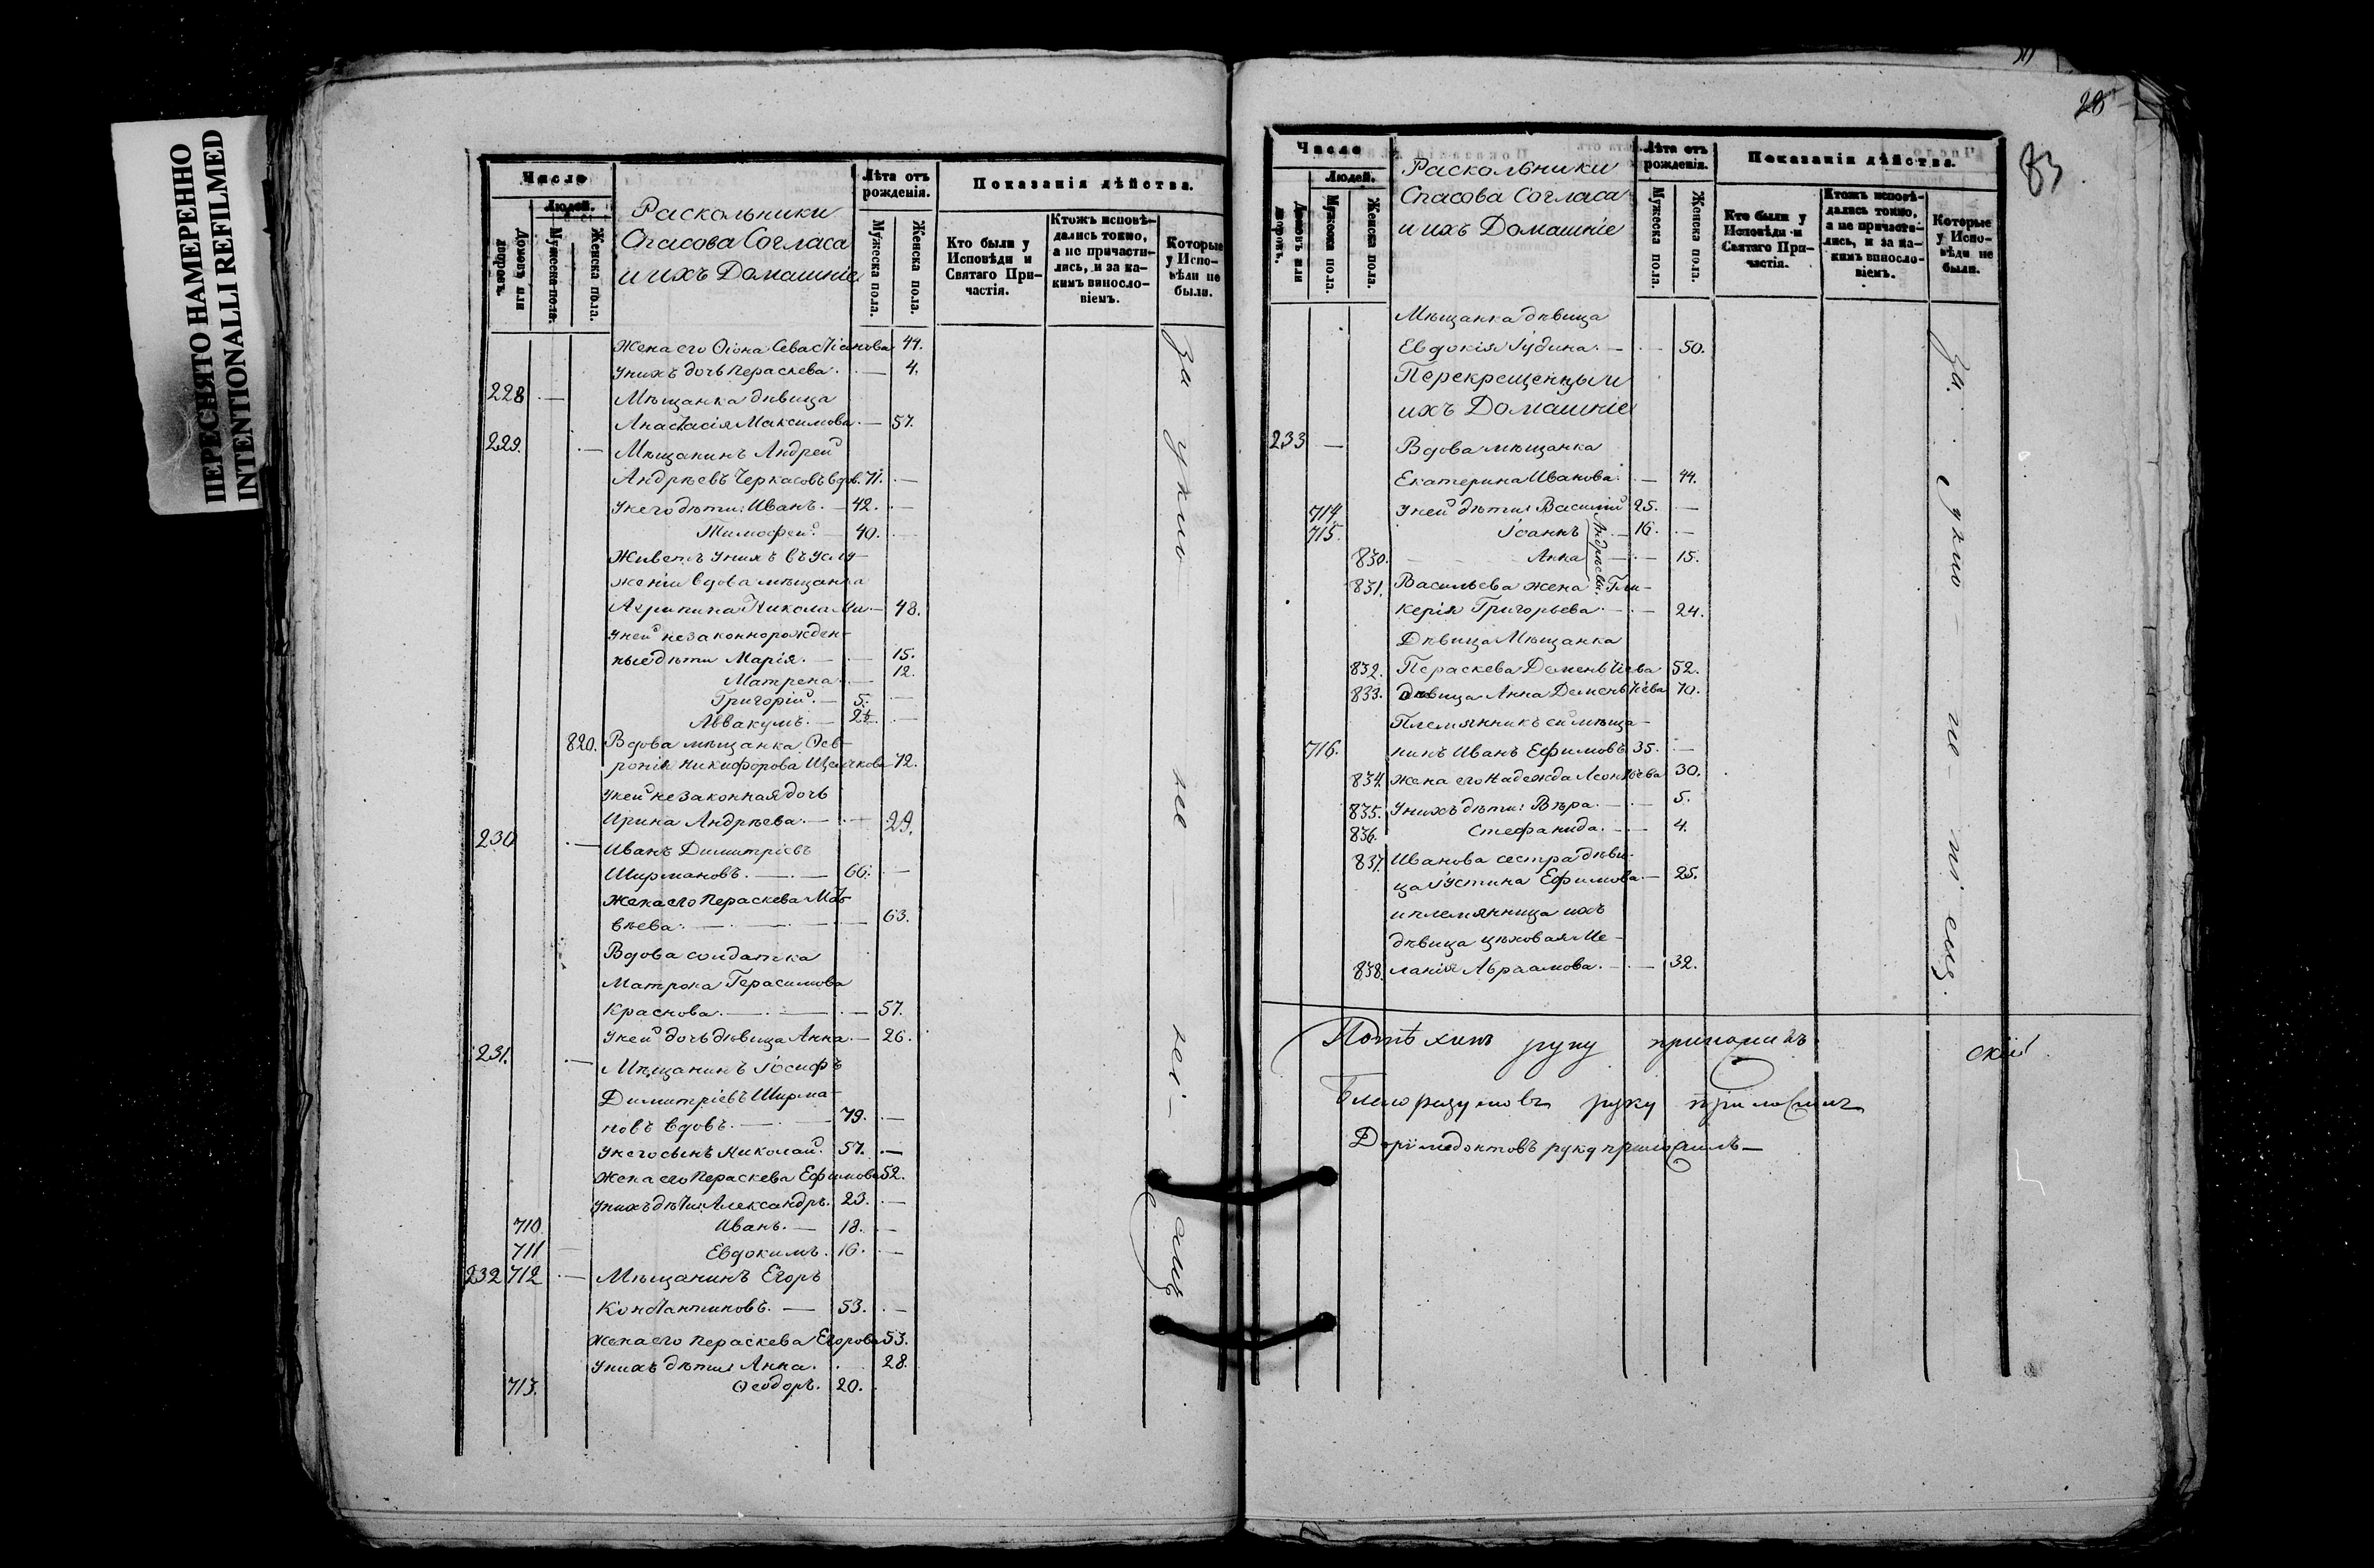 ПЕРЕСНЯТО НАМЕРЕННО
INTENTIONALLI REFILMED
Число
Людей.
Домовъ или дворовъ.
Мужеска пола.
Женска пола.
Раскольники
Спасова Согласа
и ихъ Домашніе
Лѣта отъ рожденія.
Мужеска пола.
Женска пола.
Показанія дѣйства.
Кто были у Исповѣди и Святаго При-частія.
Ктожъ исповѣ-дались токмо, а не причасти-лись, и за ка-кимъ виносло-віемъ.
Которые у Испо-вѣди не были.
Жена его Севастіанова 44.
у нихъ дочь Пераскева. — 4.
228 — Мѣщанка дѣвица
Анастасія Максимова. — 57.
229. — Мѣщанинъ Андрей
Андрѣевъ Черкасовъ вдов. 71. —
У него дѣти: Иванъ. — 42. —
Тимофей. — 40. —
Живетъ у нихъ въ услу-
женіи вдова мѣщанка
Акрипина — 48.
У ней незаконнорожден-
ные дѣти Марія. — 15.
Матрена — 12.
Григорій. — 5. —
Аввакумъ. —
820. Вдова мѣщанка Фев-
ронія Никифорова 72.
у ней незаконная дочь
Ирина Андрѣева. — 29.
230 — Иванъ Димитріевъ
Ширмановъ. — 66. —
Жена его Пераскева Мат-
вѣева. — 63.
Вдова солдатка
Матрона Герасимова
Краснова. — 57.
У ней дочь дѣвица Анна. — 26.
231. — Мѣщанинъ Іосифъ
Димитріевъ Ширма-
новъ вдовъ. — 79. —
У него сынъ Николай. 57. —
Жена его Пераскева Ефимова 52.
у нихъ дѣти: Александръ. 23. —
710 Иванъ. — 18. —
711 Евдокимъ. 16. —
232 712 — Мѣщанинъ Егоръ
Константиновъ. — 53. —
Жена его Пераскева Егорова 53.
У нихъ дѣти: Анна. 28.
713. Ѳеодоръ. 20.
28
83
Число
Людей.
Домовъ или дворовъ.
Мужеска пола.
Женска пола.
Раскольники
Спасова Согласа
и ихъ Домашніе
Лѣта отъ рожденія.
Мужеска пола.
Женска пола.
Показанія дѣйства.
Кто были у Исповѣди и Святаго При-частія.
Ктожъ исповѣ-дались токмо, а не причасти-лись, и за ка-кимъ виносло-віемъ.
Которые у Испо-вѣди не были.
Мѣщанка дѣвица
Евдокія Іудина. — 50.
Перекрещенцы и
ихъ Домашніе
233 — Вдова мѣщанка
Екатерина Иванова. — 44.
714 У ней дѣти: Василій 25. —
715. Іоаннъ — 16. —
830. Анна — 15.
Андрѣевы.
831. Васильева жена Гли-
керія Григорьева — 24.
Дѣвица Мѣщанка
832. Пераскева Дементіева 52.
833. дѣвица Анна Дементіева 70.
Племянникъ ей мѣща-
716. нинъ Иванъ Ефимовъ 35. —
834. жена его Надежда Леонтьева 30.
835. У нихъ дѣти: Вѣра. — 5.
836. Стефанида. — 4.
837. Иванова сестра дѣви-
ца Іустина Ефимова. — 25.
и племянница ихъ
дѣвица цѣховая Ме-
838. ланія Авраамова. — 32.
руку приложилъ
руку приложилъ
Доримедонтовъ руку приложилъ —